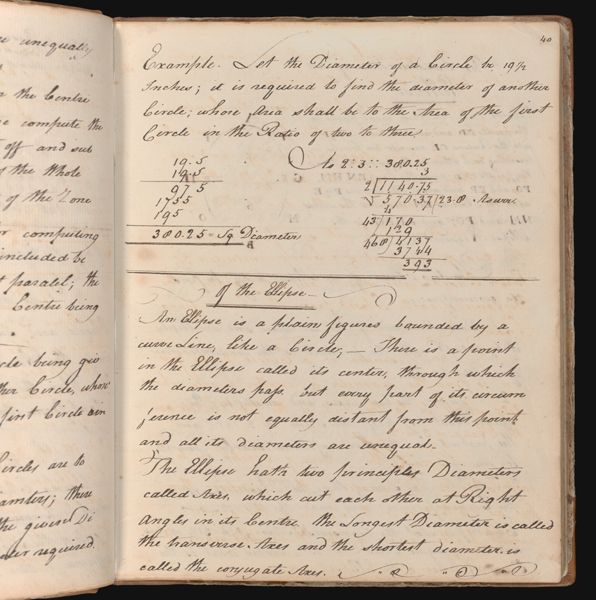 e unequally
n the Centre
e compute the
off and sub
of the Whole
of the Zone
r computing
included be
t paralel; the
Centre being
cle being geo
ther Circle, whose
first Circle ain
Circles are to
iamters; there
the given Di
eter required.
40
Example. Let the Diameter of a Circle be 19½
Inches; it is required to find the diameter of another
Circle; whose Area shall be to the Area of the first
Circle in the Ratio of two to three
19.5
19.5
975
1755
195
380.25 = Sq Diameter
As 2:3::380.25
3
2|1140.75
√570.37|23.8 Answr.
4
43|170
129
468|4137
3744
393
Of the Ellipse
An Ellipse is a plain figures bounded by a
curve Line, like a Circle; — There is a point
in the Ellipse called its center, through which
the diameters pass but every part of its circum
ference is not equally distant from this point
and all its diameters are unequal.
The Ellipse hath two principles Diameters
called Axes, which cut each other at Right
Angles in its Centre the Longest Diameter is called
the transverse Axes and the shortest diameter is
called the conjugate Axes.